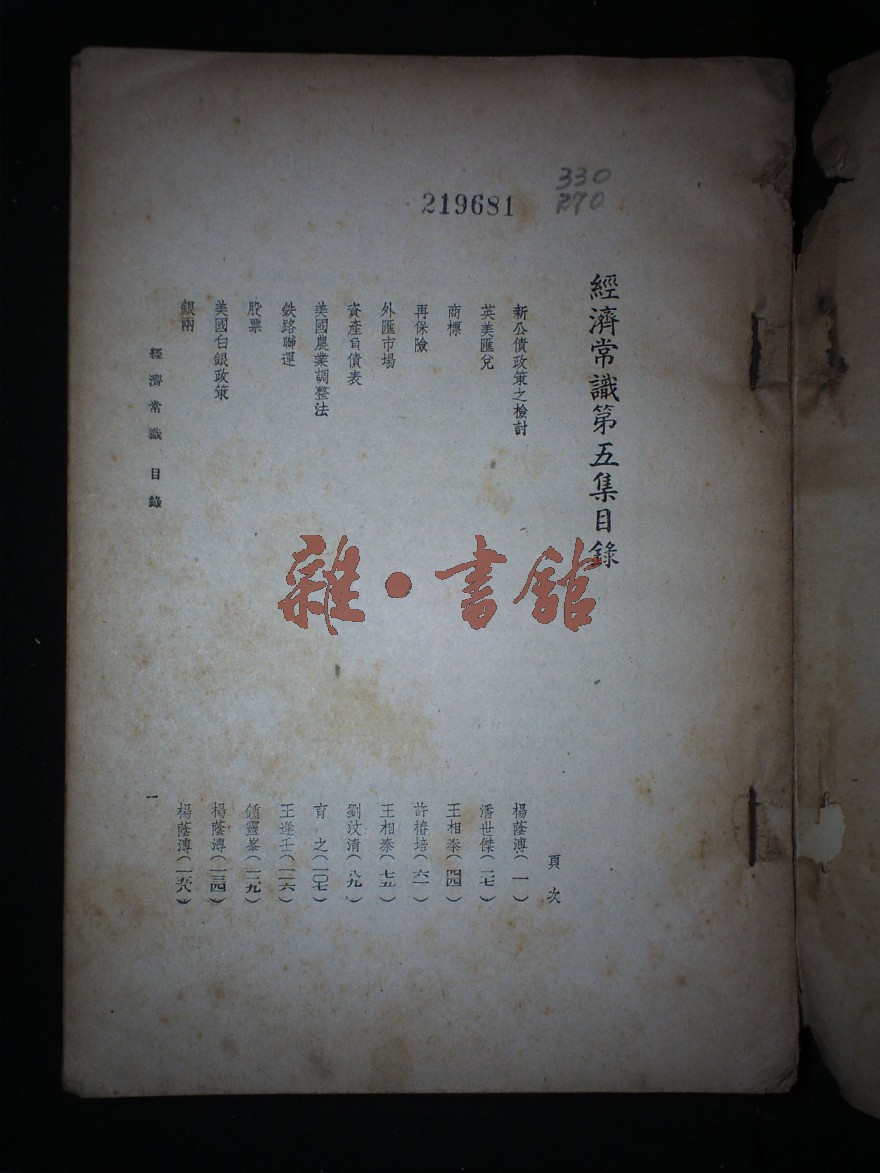 330
270
219681
經濟常識第五集目錄
頁次
新公債政策之檢討 楊蔭溥(一)
英美匯兌 潘世傑(二七)
商標 王相秦(四四)
再保險 許椿培(六一)
外匯市場 王相秦(七五)
資產負債表 劉汶清(八九)
美國農業調整法 育之(一〇七)
鉄路聯運 王逢壬(一一六)
股票 鍾靈峯(一二九)
美國白銀政策 楊蔭溥(一三四)
銀兩 楊蔭溥(一五八)
經濟常識 目錄
一
雜·書館